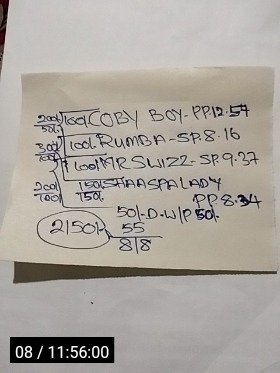 200/. 100/. COBY BOY-P.P.12.57
50/.
300/. 100/. RUMBA-S.P.8.16
100/. 100/. MR SWIZZ-S.P.9.37
200/. 150/. SHAASPA LADY
100/. 150/. P.P.8.34
50/-D.W/P 50/.
2150/- 55
8/8
08 / 11:56:00